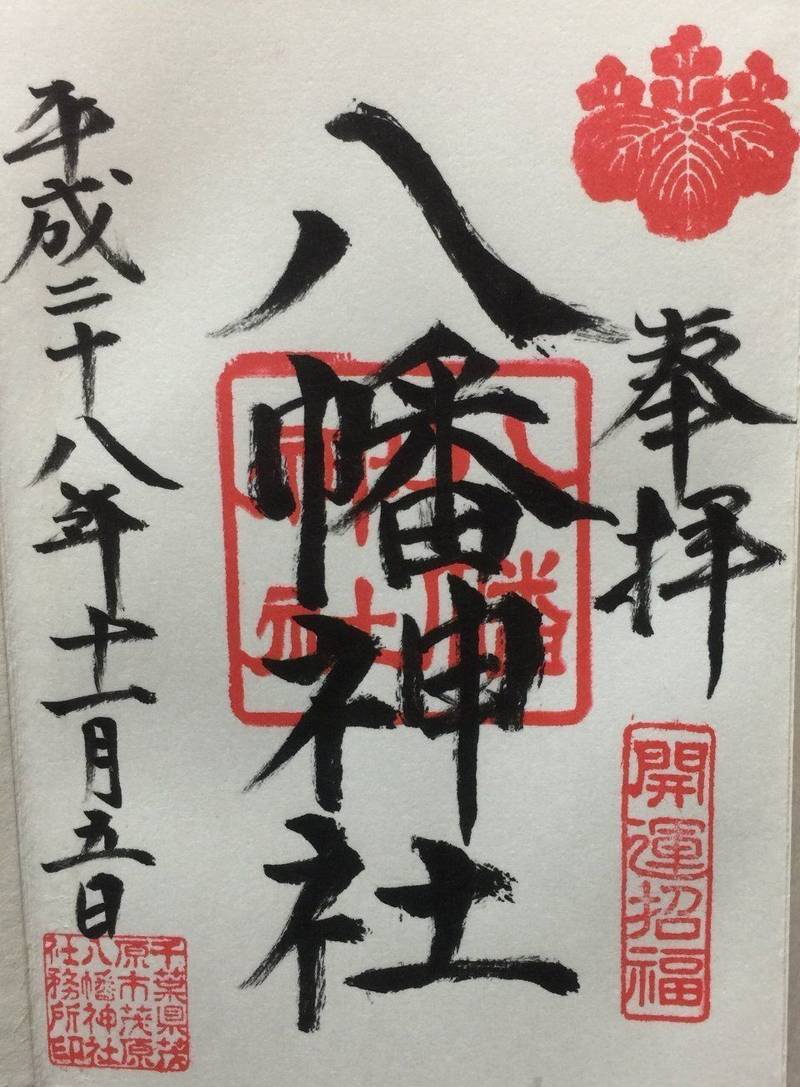 奉拝
開運招福
八幡神社
八幡神社
平成二十八年十一月五日
千葉県茂
原市茂原
八幡神社
社務所印